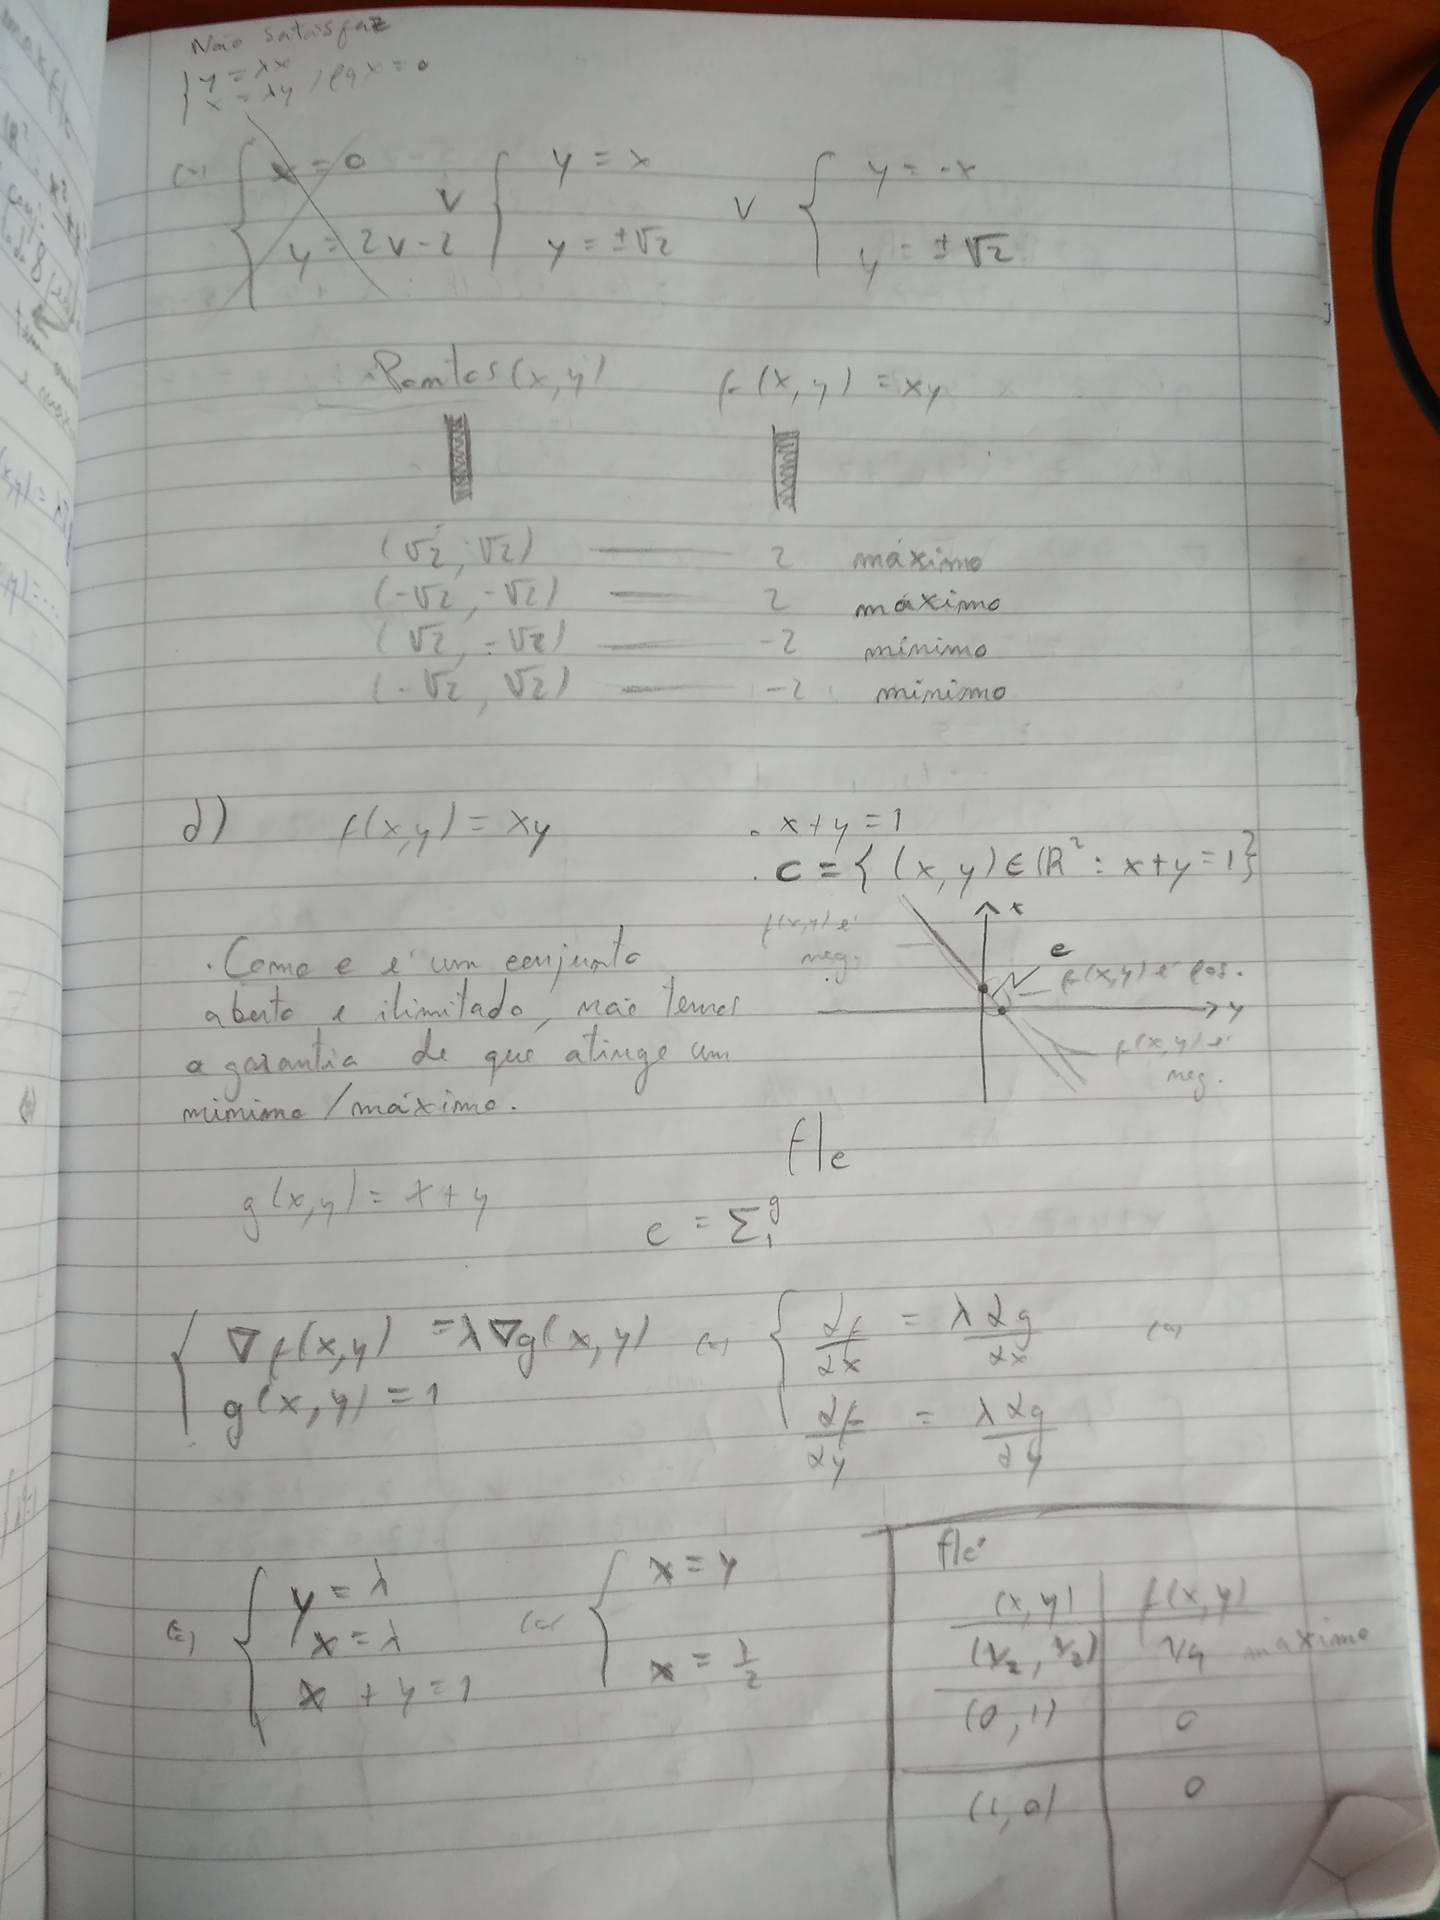 Não satisfaz
{ y = λx
x = λy , pq x = 0
(=) { x = 0
y = 2 v -2
v { y = x
y = ±√2
v { y = -x
y = ±√2
. Pontos (x, y)
f(x, y) = xy
(√2, √2) —— 2 máximo
(-√2, -√2) —— 2 máximo
(√2, -√2) —— -2 mínimo
(-√2, √2) —— -2 mínimo
d) f(x,y) = xy
. x + y = 1
. C = { (x, y) ∈ ℝ² : x + y = 1 }
f(x,y) é
neg.
x
C
f(x,y) é pos.
y
f(x,y) é
neg.
. Como C é um conjunto
aberto e ilimitado, não temos
a garantia de que atinge um
mínimo / máximo.
f|c
g(x,y) = x + y
C = Σ₁ᵍ
{ ∇f(x,y) = λ∇g(x,y)
g(x,y) = 1
(=) { ∂f/∂x = λ ∂g/∂x
∂f/∂y = λ ∂g/∂y
(=)
(=) { y = λ
x = λ
x + y = 1
(=) { x = y
x = 1/2
f|c
(x, y) | f(x, y)
(1/2, 1/2) | 1/4 máximo
(0, 1) | 0
(1, 0) | 0